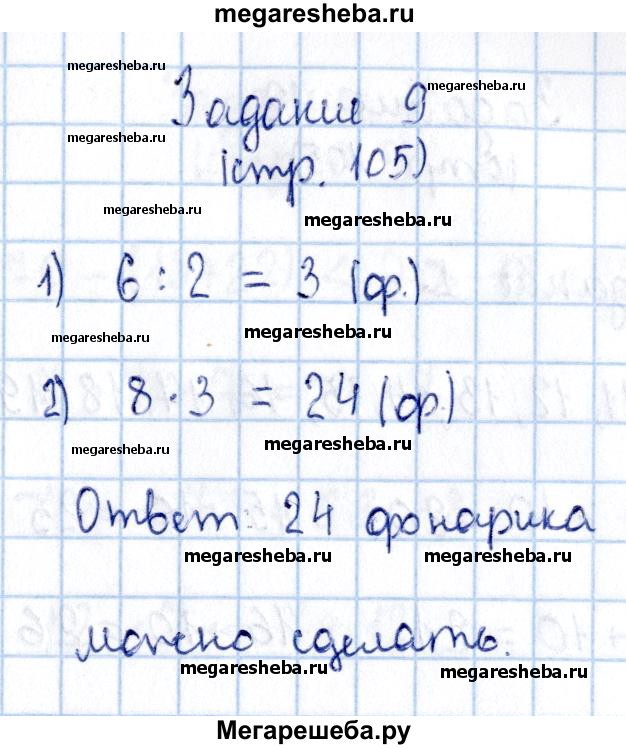 megaresheba.ru
megaresheba.ru
Задание 9
megaresheba.ru
megaresheba.ru
(стр. 105)
megaresheba.ru
megaresheba.ru
1) 6 : 2 = 3 (ф.)
megaresheba.ru
megaresheba.ru
2) 8 · 3 = 24 (ф.)
megaresheba.ru
megaresheba.ru
Ответ: 24 фонарика
megaresheba.ru
megaresheba.ru
можно сделать.
megaresheba.ru
megaresheba.ru
Мегарешеба.ру